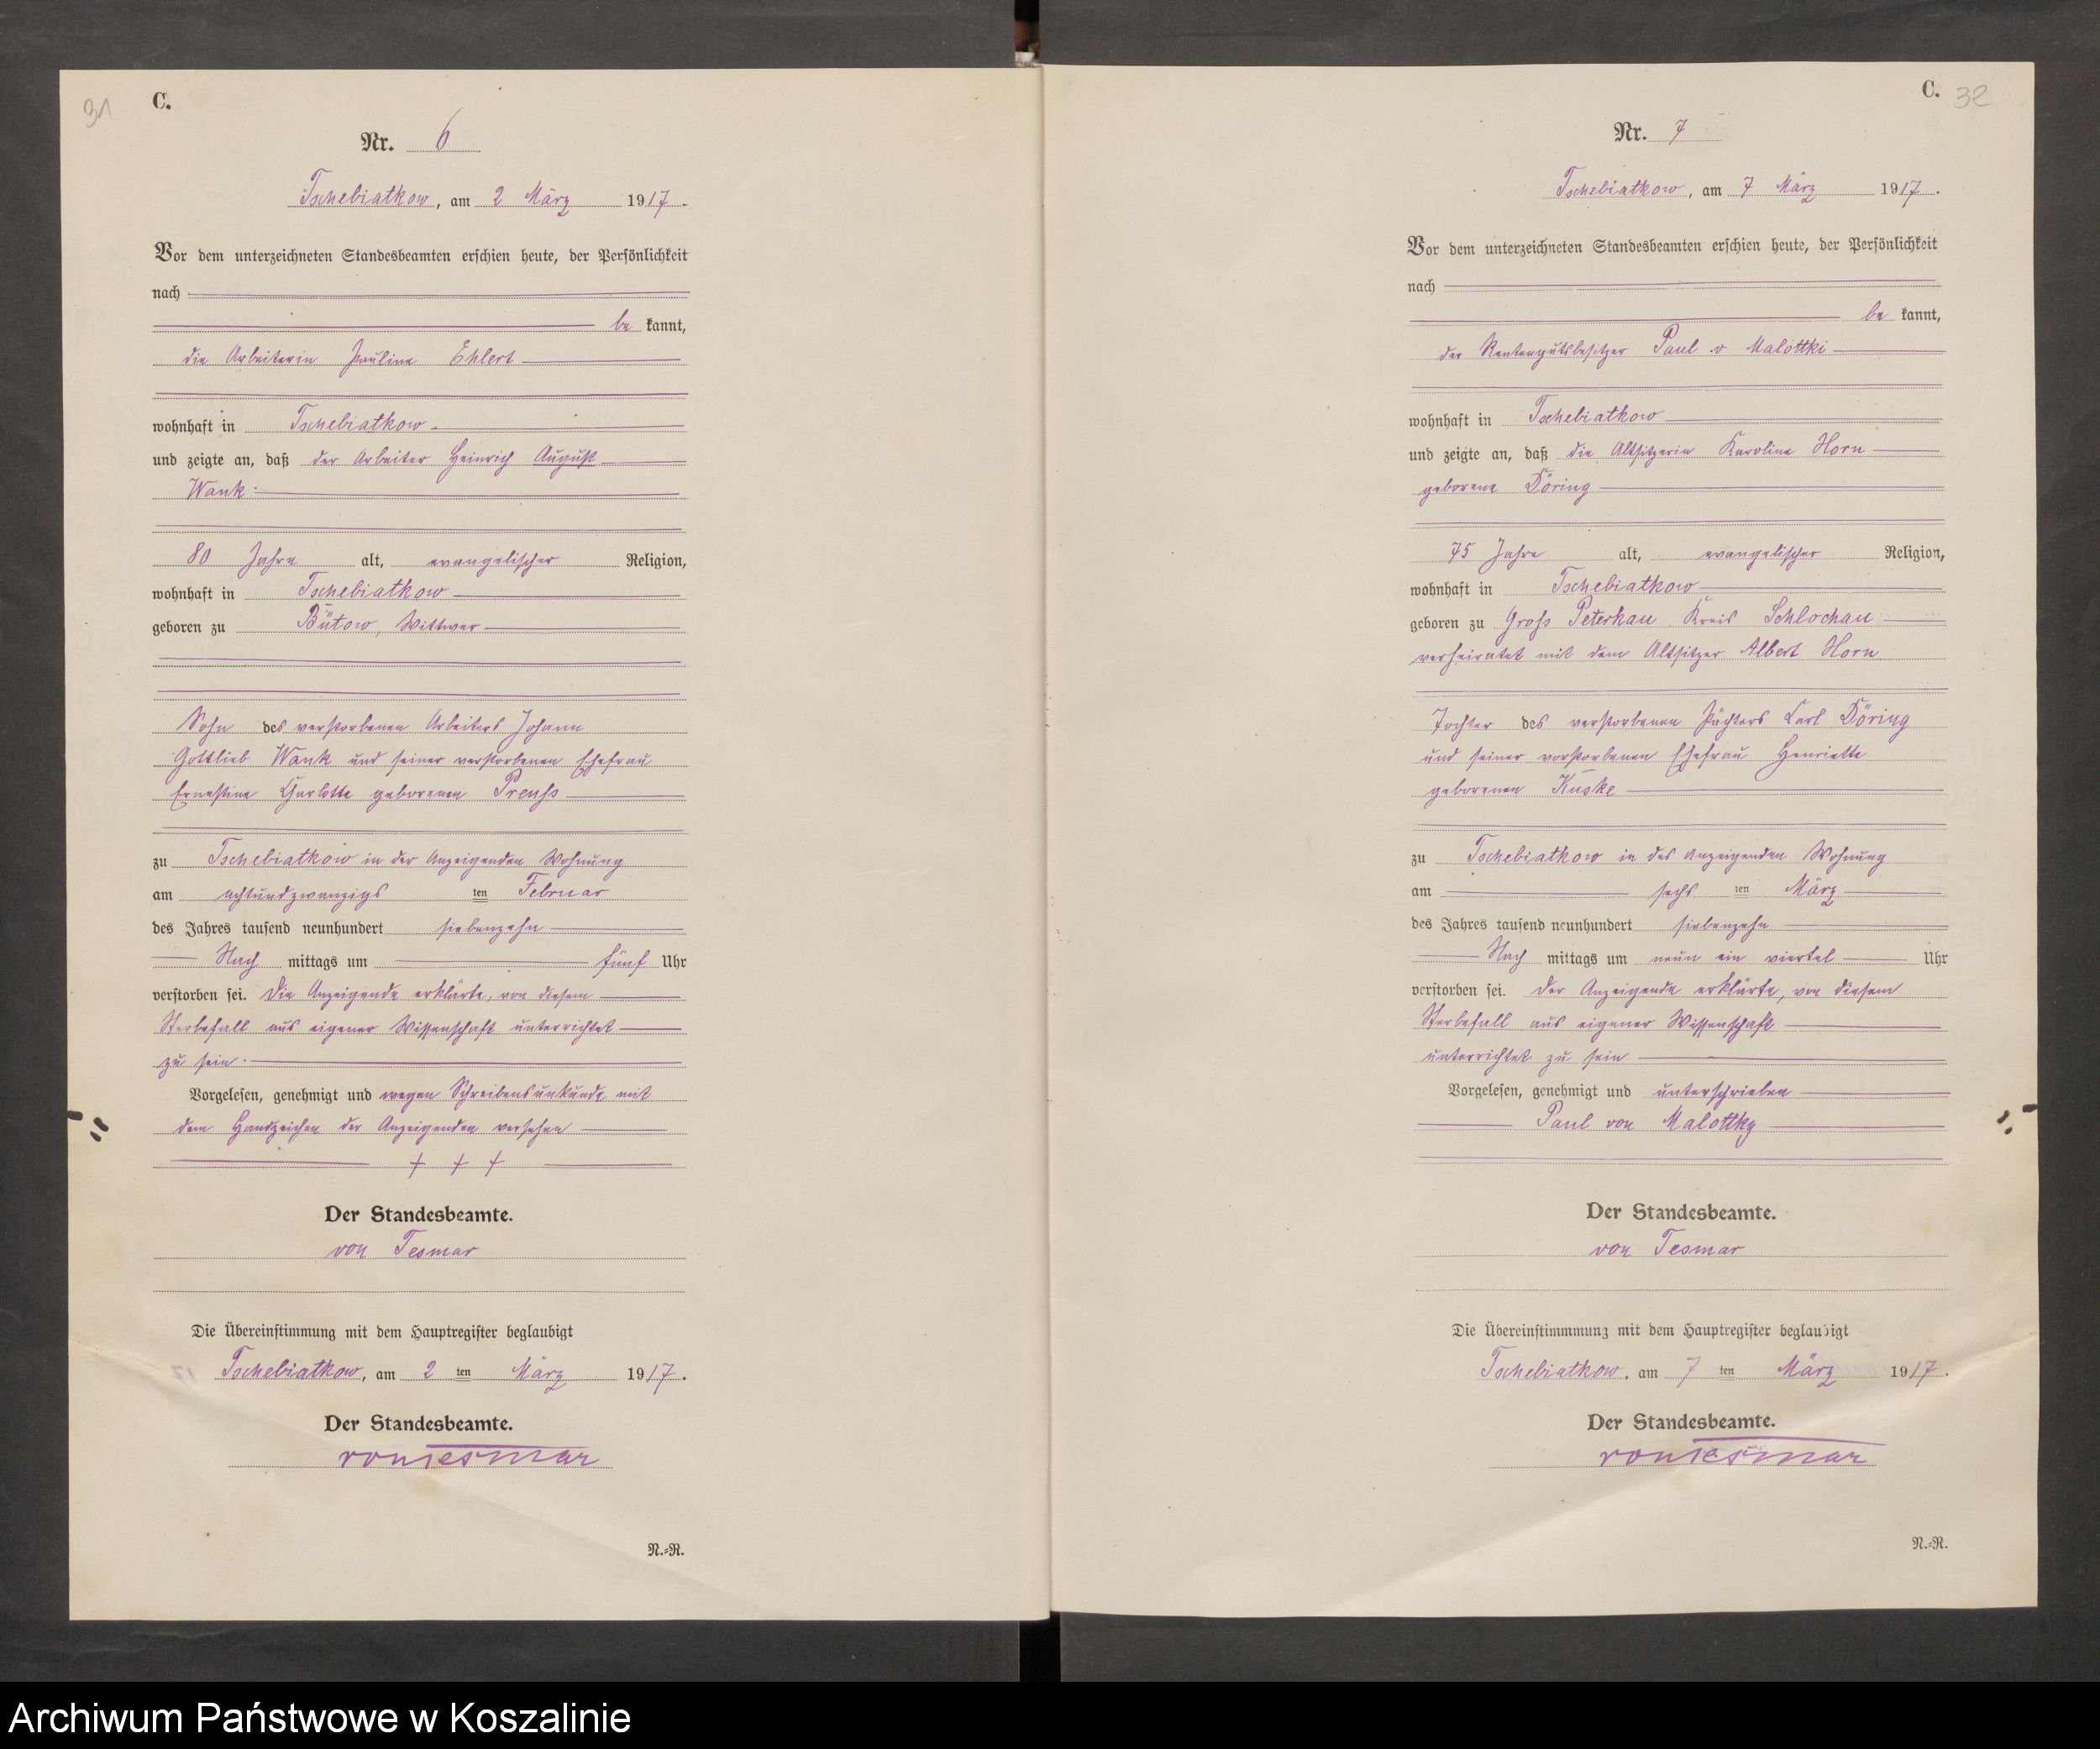 31
C.
Nr. 6
Tschebiatkow, am 2 März 1917.
Vor dem unterzeichneten Standesbeamten erschien heute, der Persönlichkeit
nach
be kannt,
die Arbeiterin Pauline Ehlert
wohnhaft in Tschebiatkow
und zeigte an, daß der Arbeiter Heinrich August
Wank
80 Jahre alt, evangelischer Religion,
wohnhaft in Tschebiatkow
geboren zu Bütow, Wittwer
Sohn des verstorbenen Arbeiters Johann
Gottlieb Wank und seiner verstorbenen Ehefrau
Ernestine Charlotte geborenen Preuß
zu Tschebiatkow in der Anzeigenden Wohnung
am achtundzwanzigs ten Februar
des Jahres tausend neunhundert siebenzehn
Nach mittags um fünf Uhr
verstorben sei. Die Anzeigende erklärte, von diesem
Sterbefall aus eigener Wissenschaft unterrichtet
zu sein.
Vorgelesen, genehmigt und wegen Schreibensunkunde mit
dem Handzeichen der Anzeigenden versehen
+ + +
Der Standesbeamte.
von Tesmar
Die Übereinstimmung mit dem Hauptregister beglaubigt
Tschebiatkow, am 2 ten März 1917.
Der Standesbeamte.
von Tesmar
N.-R.
C. 32
Nr. 7
Tschebiatkow, am 7 März 1917.
Vor dem unterzeichneten Standesbeamten erschien heute, der Persönlichkeit
nach
be kannt,
der Rentengutsbesitzer Paul v Malottki
wohnhaft in Tschebiatkow
und zeigte an, daß die Altsitzerin Karoline Horn
geborene Döring
75 Jahre alt, evangelischer Religion,
wohnhaft in Tschebiatkow
geboren zu Groß Peterkau Kreis Schlochau
verheiratet mit dem Altsitzer Albert Horn
Tochter des verstorbenen Pächters Carl Döring
und seiner verstorbenen Ehefrau Henriette
geborenen Kuske
zu Tschebiatkow in des Anzeigenden Wohnung
am sechs ten März
des Jahres tausend neunhundert siebenzehn
Nach mittags um neun ein viertel Uhr
verstorben sei. Der Anzeigende erklärte, von diesem
Sterbefall aus eigener Wissenschaft
unterrichtet zu sein
Vorgelesen, genehmigt und unterschrieben
Paul von Malottky
Der Standesbeamte.
von Tesmar
Die Übereinstimmung mit dem Hauptregister beglaubigt
Tschebiatkow, am 7 ten März 1917.
Der Standesbeamte.
von Tesmar
N.-R.
Archiwum Państwowe w Koszalinie